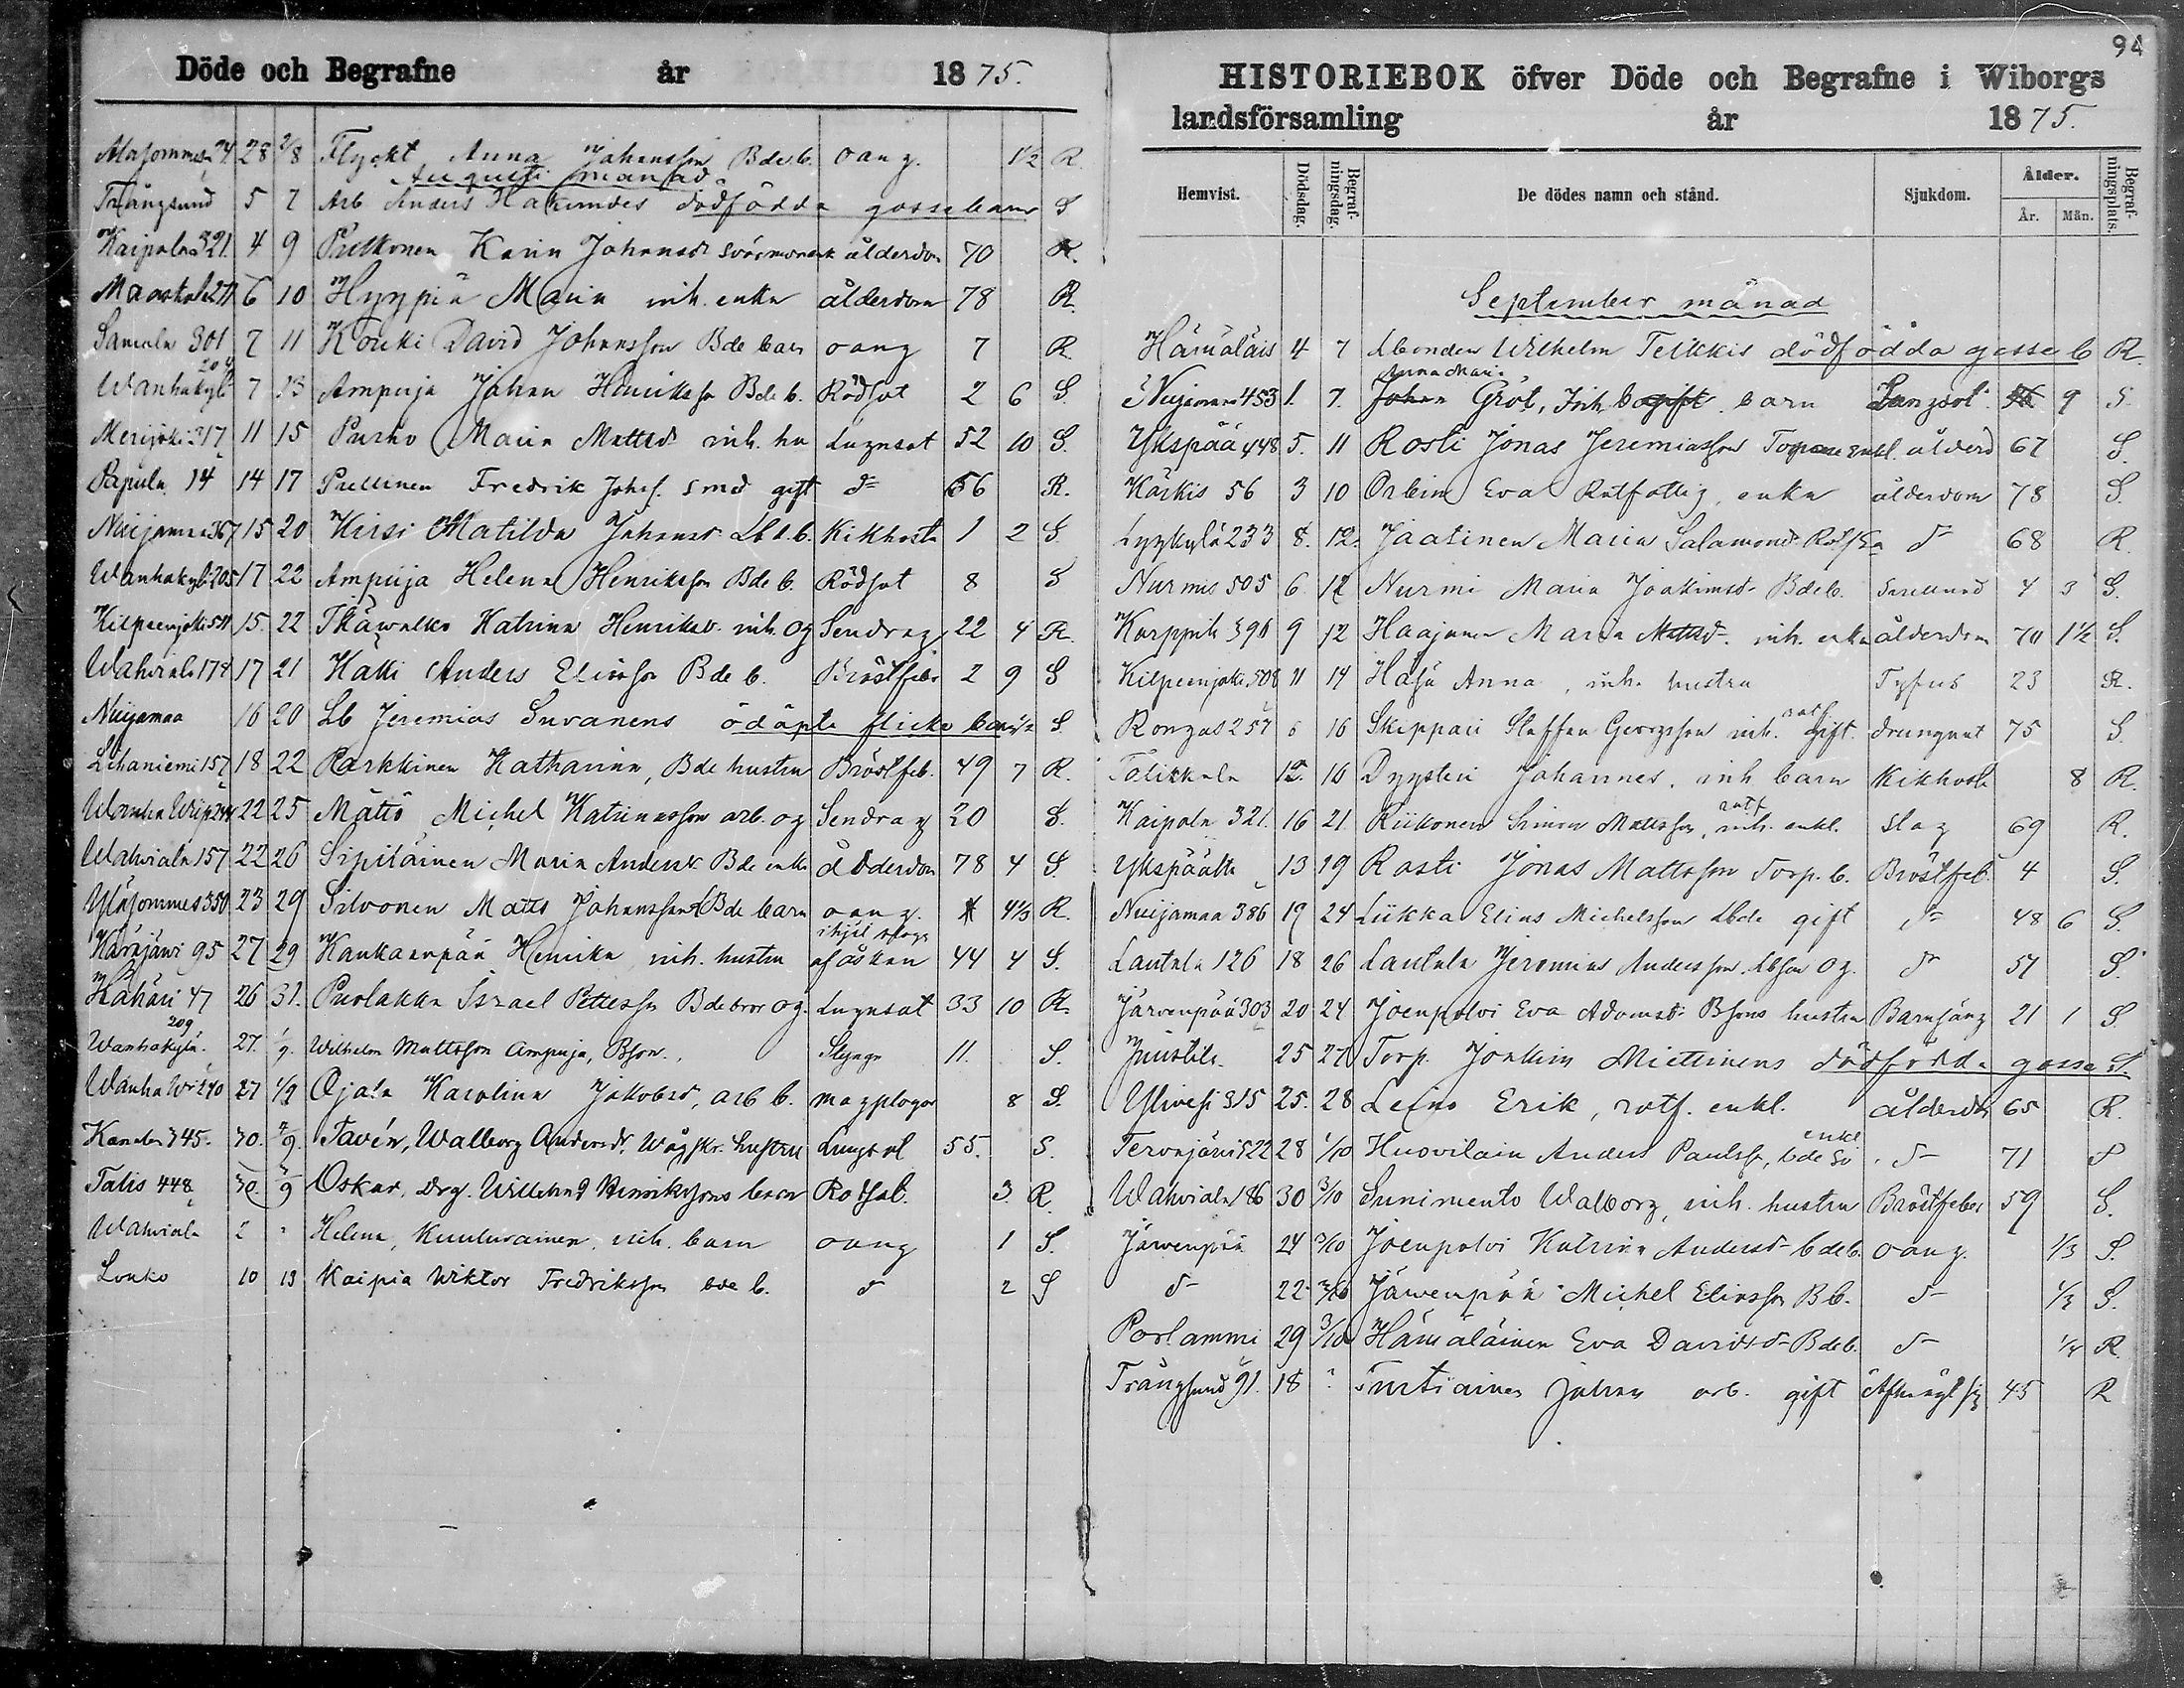 Döde och Begrafne år 1875.
Alasommes 74 28 2/8 Flyckt Anna Johansson Bdeb. oang. 1½ R
Augusti månad
Trångsund 5 7 Arb Anders Hakamdes dödfödda gossebarn S
Kaipola 321. 4 9 Pulkonen Karin Johansdr ålderdom 70 R.
6 10 Hyypiä Maria inh. enka ålderdom 78 R.
Samola 301 7 11 Kouki David Johansson Bde barn oang 7 R
Wanhakylä 204 7 13 Ampuja Johan Henriksson Bde b. Rödsot 2 6 S.
Merijoki 317 11 15 Purho Maria Mattsd. inh. hu Lungsot 52 10 S.
Papula 14 14 17 Pullinen Fredrik Johs. smed gift do 56 R.
Nuijamaa 367 15 20 Kirsi Matilda Johansd. Lbd.b. Kikhosta 1 2 S
Wanhakylä 205 17 22 Ampuja Helena Henriksson Bde b. Rödsot 8 S
Kilpeenjoki 511 15. 22 Tkäwalko Katrina Henriksd. inh. og Sendrag 22 4 R.
Wahviala 174 17 21 Katti Anders Eliasson Bde b. Bröstfeb 2 9 S
Nuijamaa 16 20 Lb Jeremias Suvanens odöpta flicke barn S.
Lihaniemi 157 18 22 Parkkinen Katharina, Bde hustru Bröstfeb. 49 7 R.
Wanha Wiip 244 22 25 Mättö Michel Katrinasson arb. og Sendrag 20 S.
Wahviala 157 22 26 Sipiläinen Maria Andersd. Bde enka ålderdom 78 4 S.
Yläsommes 350 23 29 Silvonen Matts Johansson Bde barn oang. 4⅓ R.
Kärsjäwi 95 27 29 Kankaanpää Henrika inh. hustru ihjel slagn af åskan 44 4 S.
Hähäri 47 26 31. Puolakka Israel Pettersson Bde bror og. Lungsot 33 10 R.
Wanhakylä 209 27. 1/9. Wilhelm Mattsson Ampuja, Bson. Slagn 11. S.
Wanha Wi 240 27 1/9 Ojala Karolina Jakobsd, arb b. magplågor 8 S.
745. 30. 2/9. Tavén, Walborg Andersdr. hustru Lungsot 55. S.
Talis 448 30. 5/9 Oskar, Drg. Willehad Henrikssons barn Rödsot. 3 R.
Wahviala Helena, Kuuluvainen inh. barn oang 1 S.
Louko 10 13 Kaipia Wiktor Fredriksson bde b. d 2 S
94
HISTORIEBOK öfver Döde och Begrafne i Wiborgs
landsförsamling år 1875.
Hemvist. Dödsdag. Begrafningsdag. De dödes namn och stånd. Sjukdom. Ålder. År. Mån. Begrafningsplats.
September månad
Hämäläis 4 7 Lbonden Wilhelm Teikkis dödfödda gosse b R.
Anna Maria
Nuijamaa 453 1. 7. Johan Gröt, Inh. b gift barn Lungsot 9 S.
Ykspää 448 5. 11 Rosti Jonas Jeremiasson Torpare enkl. ålderd 67 S.
Kärkis 56 3 10 Orbin Eva Rotfattig, enka ålderdom 78 S.
Lyykylä 233 8. 12. Jaatinen Maria Salamonsd. do 68 R.
Nurmis 505 6 12 Nurmi Maria Joakimsd. Bdeb. 4 3 S.
Karppila 396 9 12 Haajanen Maria Mattsd. inh. enka ålderdom 70 1½ S.
Kilpeenjoki 508 11 14 Häsä Anna, inh. hustru Tyfus 23 R.
Rongas 257 16 Skippari Staffan Georgsson inh. rotf. gift. drunknat 75 S.
Tälikkala 12. 16 Dyysteri Johannes. inh barn Kikhosta 8 R.
Kaipola 321. 16 21. Riikonen Simon Mattsson, rotf inh. enkl. slag 69 R.
Ykspäältä 13 19 Rasti Jonas Mattsson Torp. b. Bröstfeb. 4 S.
Nuijamaa 386 19 24 Liikka Elias Michelsson Lbde gift do 48 6 S.
Lautala 126 18 26 Lautala Jeremias Andersson Lbson og. do 57 S.
Järvenpää 303 20 24 Joenpolvi Eva Adamsd. Bsons hustru Barnsäng 21 1 S.
Juustila. 25 27 Torp. Joakim Miettinens dödfödda gosse S.
Ylivesi 315 25. 28 Leino Erik, rotf. enkl. ålderdom 65 R.
Tervajärvi 522 28 1/10 Huovilain Anders Paulss., bde So enkl do 71 S
Wahviala 186 30 3/10 Sunimento Walborg, inh. hustru Bröstfeber 59 S.
Järwenpää 24 3/10 Joenpolvi Katrina Andersd. bdeb. oang. ⅓ S.
do 22. 3/10 Järwenpää Michel Eliasson Bb. do ⅓ S.
Porlammi 29 3/10 Hämäläinen Eva Davidsd. Bdeb. do R.
Trångsund 91. 18 Turtiainen Johan arb. gift 45 R